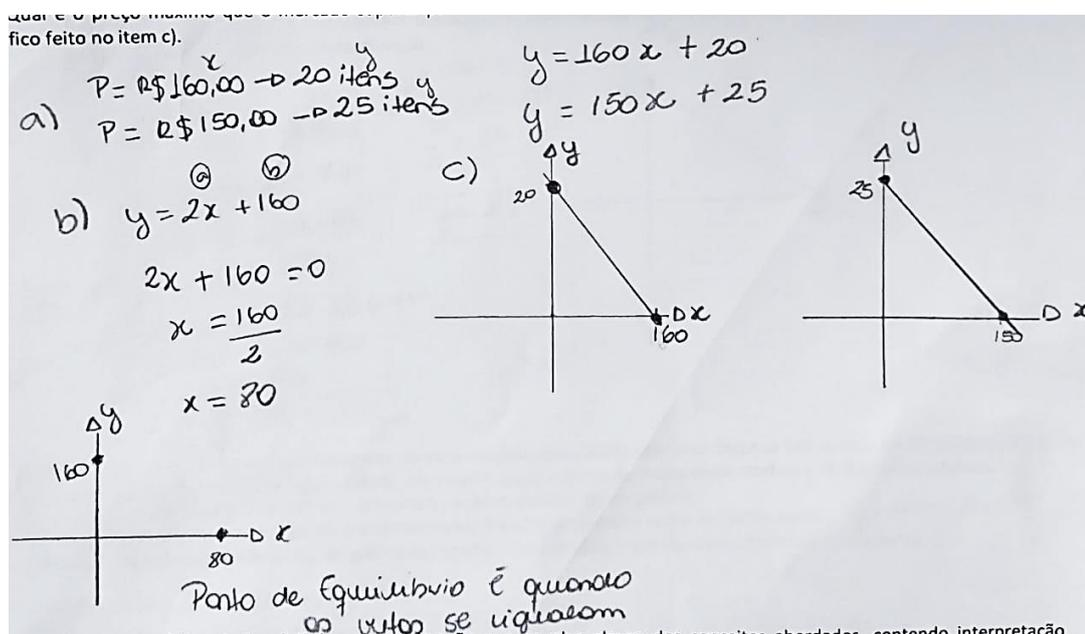 fico feito no item c).
x y
P = R$160,00 → 20 itens y
a) P = R$150,00 → 25 itens
y = 160x + 20
y = 150x + 25
ⓐ ⓑ
b) y = 2x + 160
2x + 160 = 0
x = 160
2
x = 80
y
160
80 x
c) y
20
x
160
y
25
x
150
Ponto de Equilibrio é quando
as se igualam
contendo interpretação